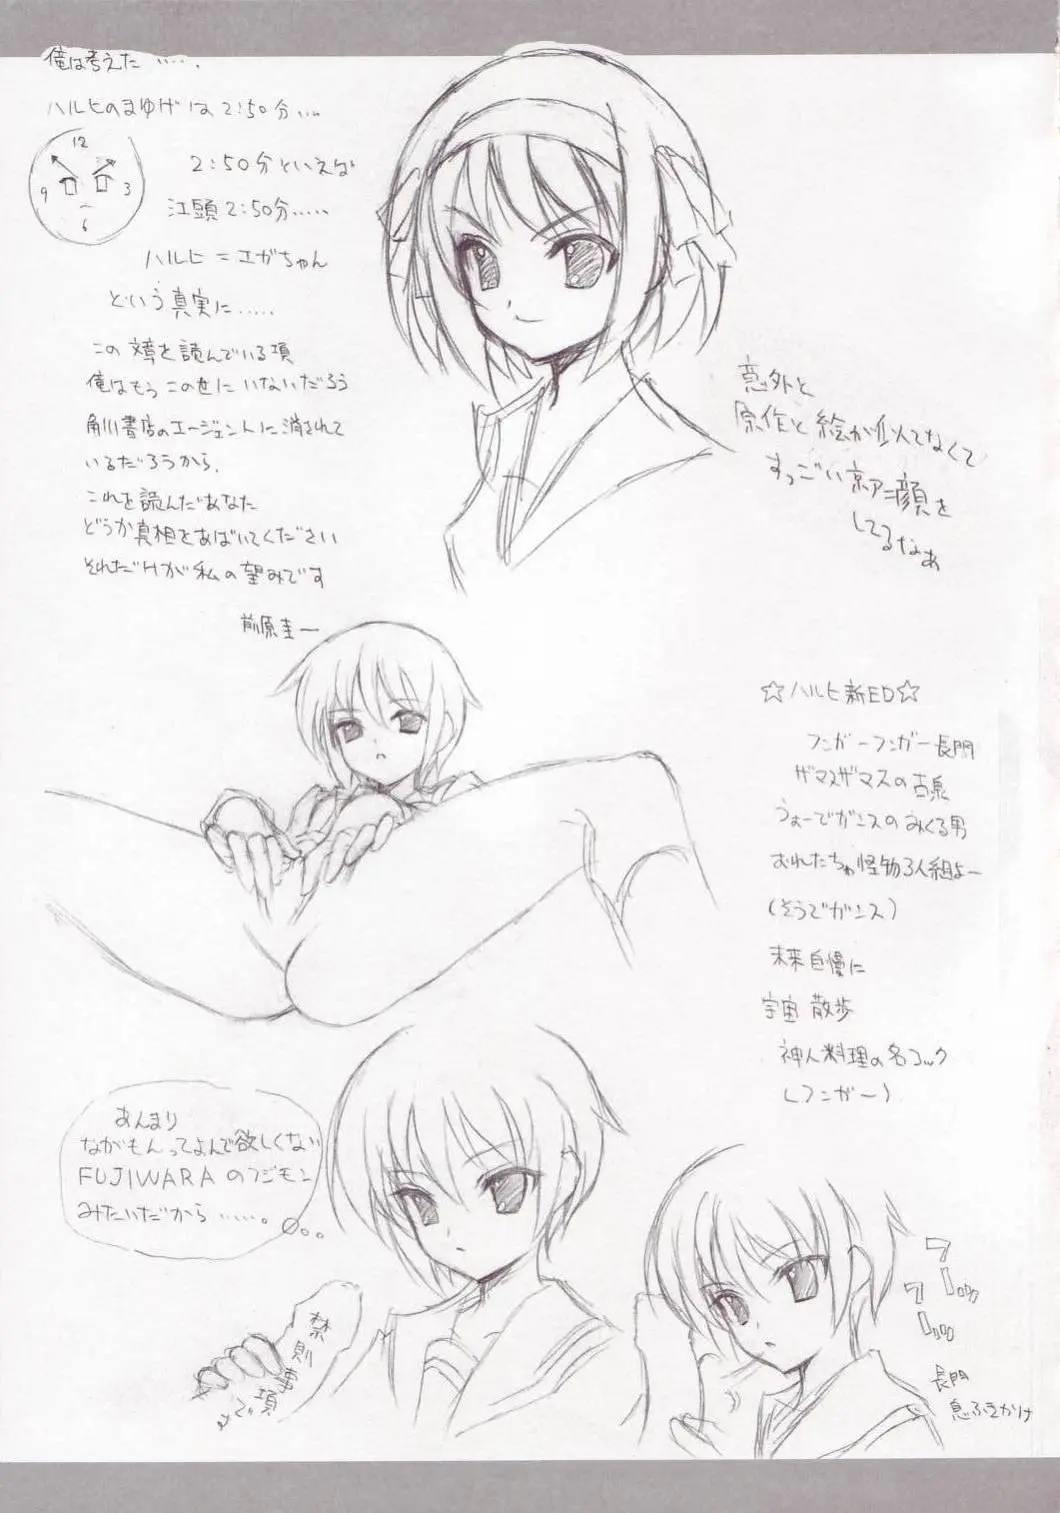 俺は考えた ‥‥.
ハルヒのまゆげは 2:50分‥.
12
9
3
6
2:50分といえば
江頭2:50分‥‥‥
ハルヒ = エガちゃん
という真実に‥‥‥
この文章を読んでいる頃
俺はもうこの世にいないだろう
角川書店のエージェントに消されて
いるだろうから.
これを読んだあなた
どうか真相をあばいてください
それだけが私の望みです
前原圭一
意外と
原作と絵が似てなくて
すっごい京アニ顔を
してるなぁ
☆ハルヒ新ED☆
フンガーフンガー長門
ザマスザマスの古泉
うぉーでガンスのみくる男
おれたちゃ怪物3人組よー
(そうでガンス)
未来自慢に
宇宙散歩
神人料理の名コック
(フンガー)
あんまり
ながもんってよんで欲しくない
FUJIWARAのフジモン
みたいだから‥‥‥。
禁則事項
で
フーッ
フーッ
長門
息ふきかけ